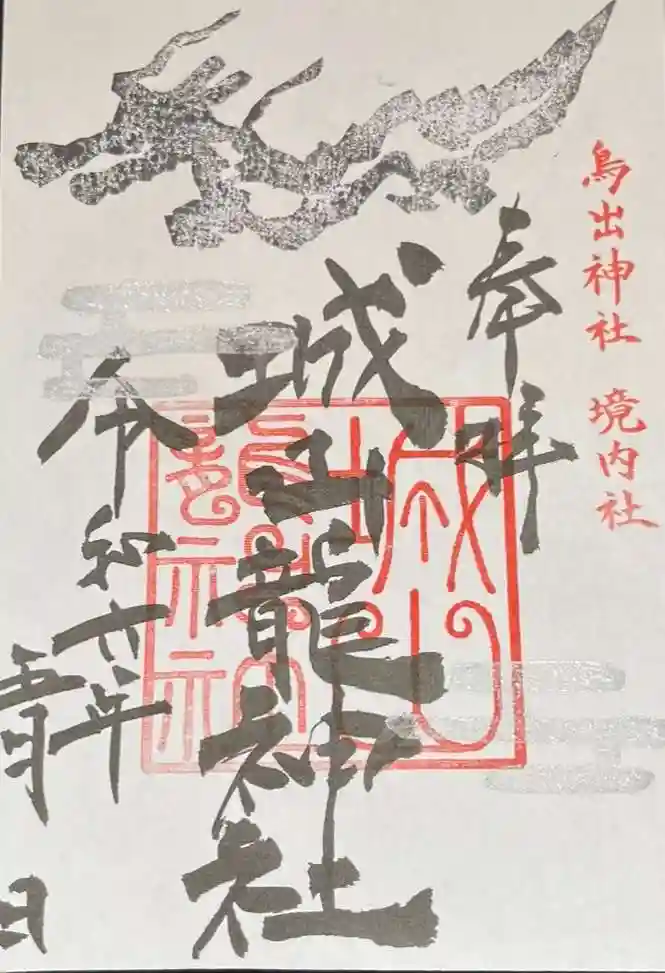 鳥出神社 境内社
奉拝
城山龍神社
城山
龍神社
令和六年
五月 日